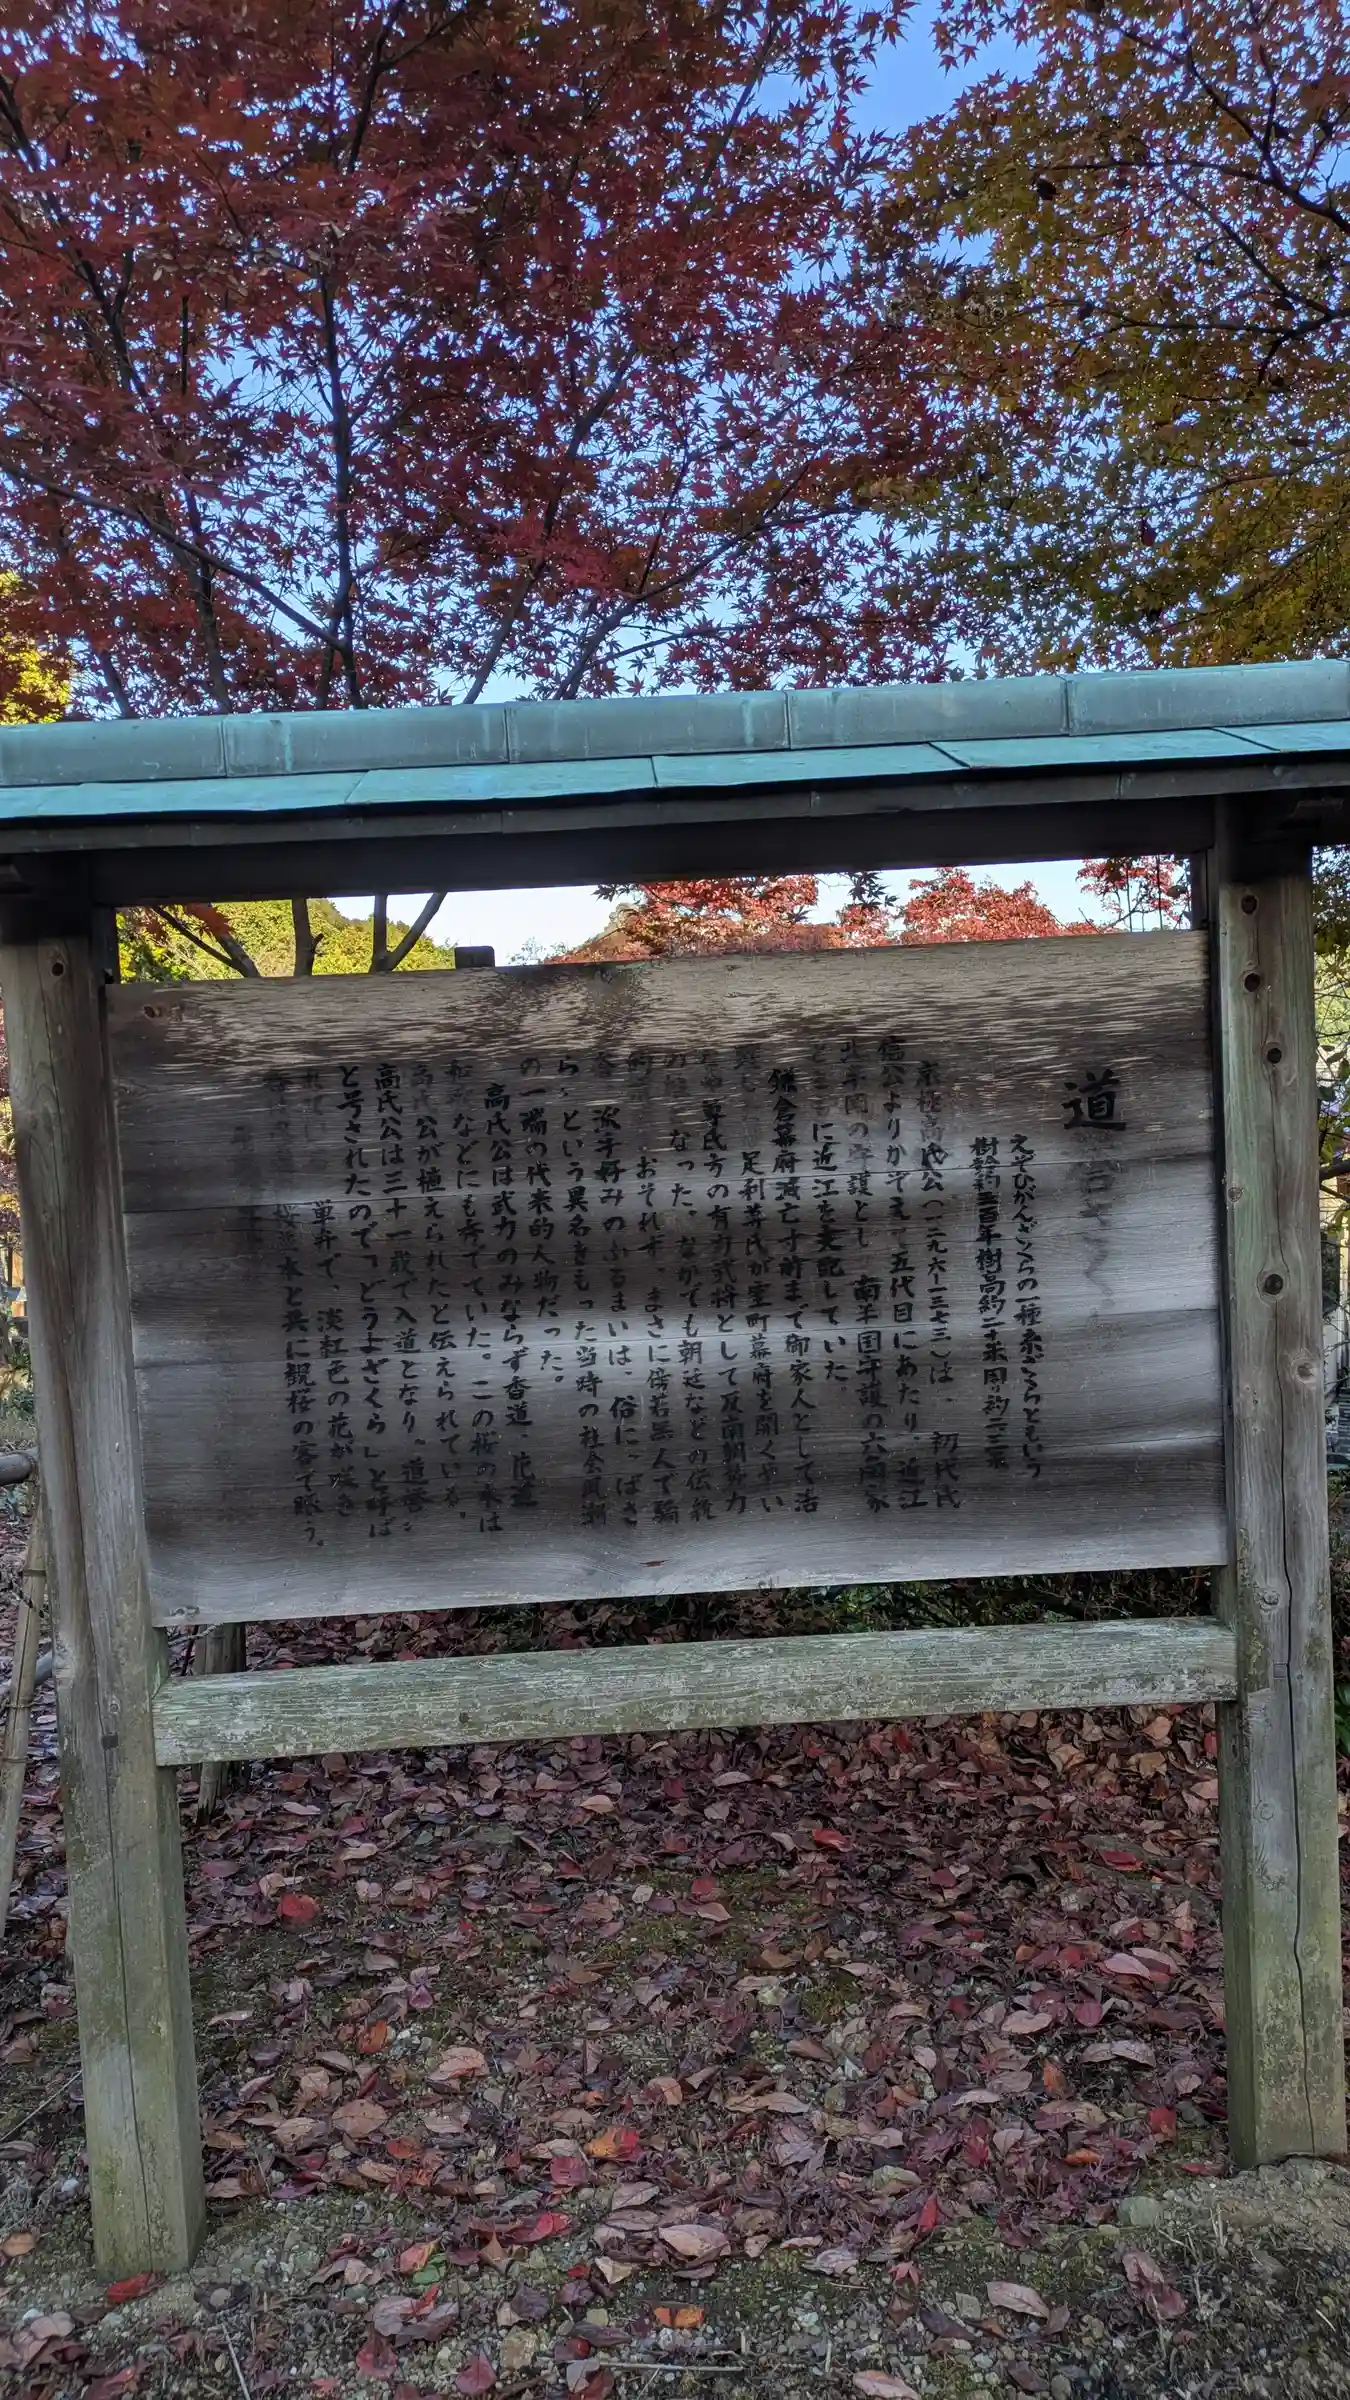 道誉ざくら
えぞひがんざくらの一種糸ざくらともいう
樹齢約三百年樹高約二十米周り約二・三米
京極高氏公(一二九六ー一三七三)は、初代氏
信公よりかぞえて五代目にあたり、近江
北半国の守護とし 南半国守護の六角家
とともに近江を支配していた。
鎌倉幕府滅亡寸前まで御家人として活
足利尊氏が室町幕府を開くさい
尊氏方の有力武将として反南朝勢力
の なった。なかでも朝廷などの伝統
おそれず、まさに傍若無人で騎
派手好みのふるまいは、俗に"ばさ
ら"という異名をもった当時の社会風潮
の一端の代表的人物だった。
高氏公は武力のみならず香道、花道
和歌などにも秀でていた。この桜の木は
高氏公が植えられたと伝えられている。
高氏公は三十一歳で入道となり"道誉"
と号されたので「どうよざくら」と呼ば
れてい 単弁で、淡紅色の花が咲き
桜 水と共に観桜の客で賑う。